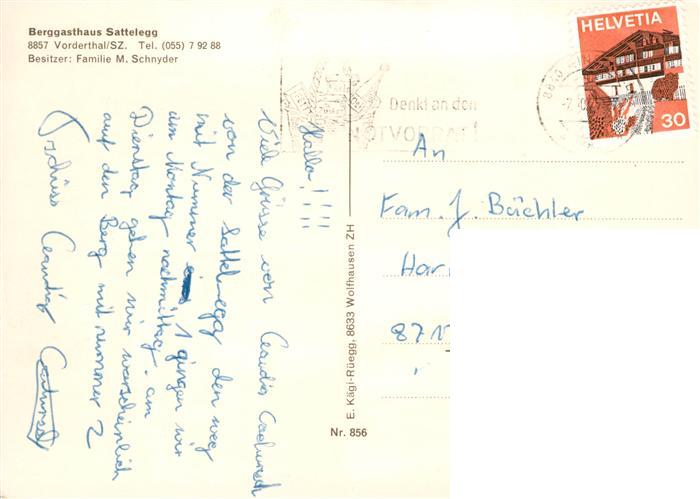 Berggasthaus Sattelegg
8857 Vorderthal/SZ. Tel. (055) 7 92 88
Besitzer: Familie M. Schnyder
HELVETIA
30
Denkt an den
NOTVORRAT!
Hallo!!!!
Viele Grüsse von
von der Sattelegg den weg
mit Nummer 1 gingen wir
am Montag nachmittag. am
Dienstag gehen wir warscheinlich
auf den Berg mit nummer 2
Tschüss
E. Kägi-Rüegg, 8633 Wolfhausen ZH
Nr. 856
An
Fam. J. Bächler
Har
871